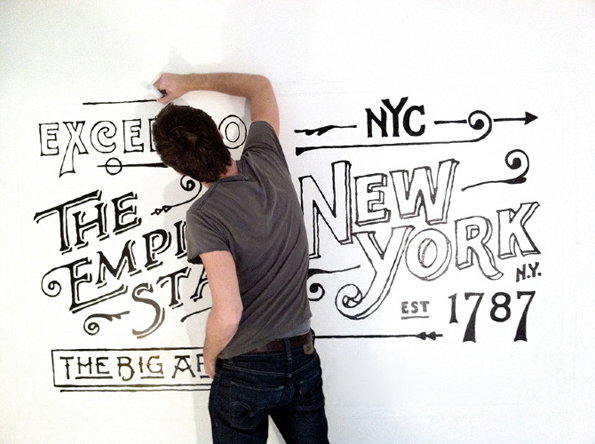 EXCEL O
THE
EMPI
STA
THE BIG AP
NYC
NEW
YORK
N.Y.
EST 1787